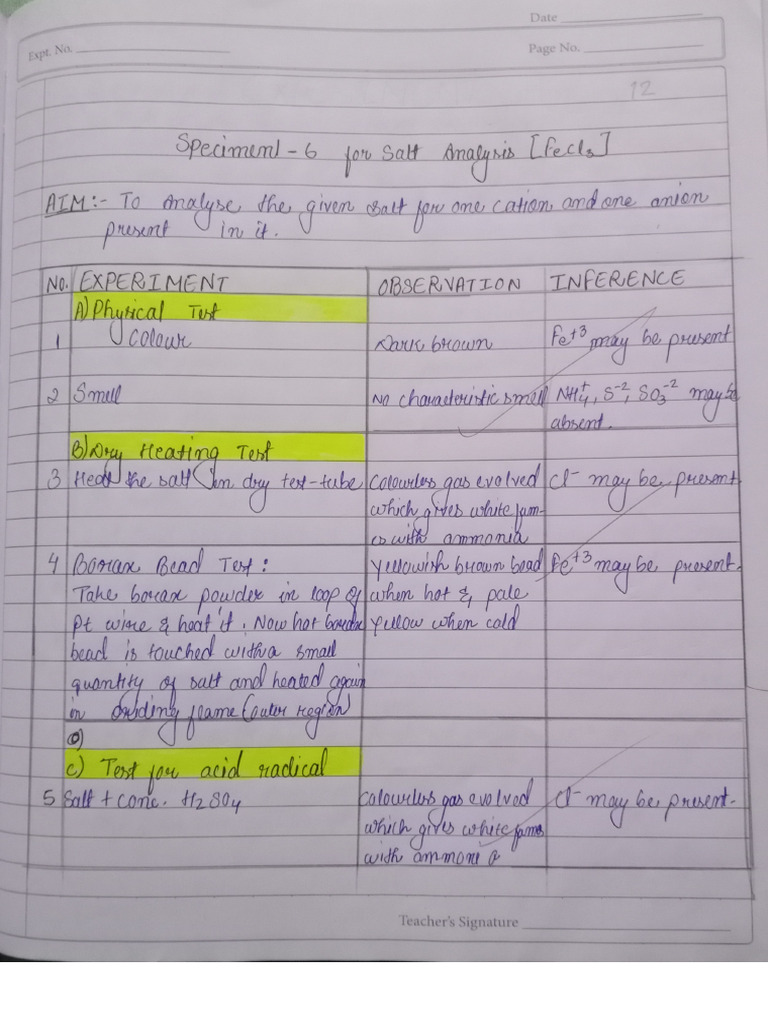 Date
Expt. No.
Page No.
12
Specimen - 6 for Salt Analysis [FeCl3]
AIM:- To analyse the given salt for one cation and one anion
present in it.
No. EXPERIMENT OBSERVATION INFERENCE
A) Physical Test
1 Colour Dark brown Fe+3 may be present
2 Smell No characteristic smell NH4+, S-2, SO3-2 may be
absent.
B) Dry Heating Test
3 Heat the salt in dry test-tube Colourless gas evolved Cl- may be present
which gives white fum-
es with ammonia
4 Borax Bead Test: Yellowish brown bead Fe+3 may be present.
Take borax powder in loop of when hot & pale
Pt wire & heat it. Now hot borax yellow when cold
bead is touched with a small
quantity of salt and heated again
in oxidising flame (outer region)
C) Test for acid radical
5 Salt + conc. H2SO4 Colourless gas evolved Cl- may be present.
which gives white fumes
with ammonia
Teacher's Signature